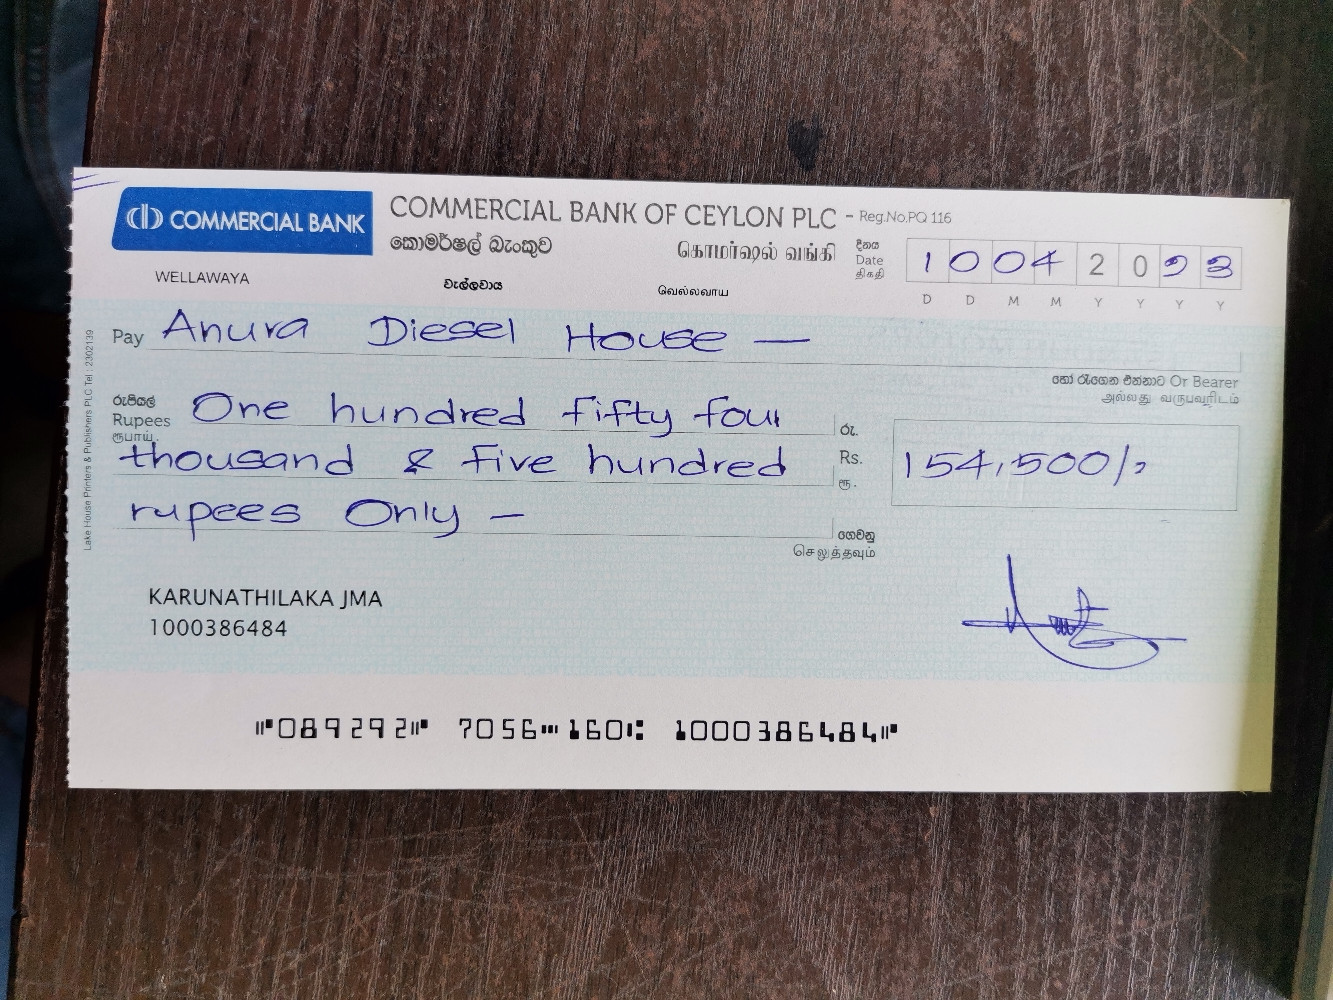 COMMERCIAL BANK
COMMERCIAL BANK OF CEYLON PLC - Reg.No.PQ 116
කොමර්ෂල් බැංකුව கொமர்ஷல் வங்கி
WELLAWAYA වැල්ලවාය வெல்லவாய
දිනය
Date
திகதி
1 0 0 4 2 0 2 3
D D M M Y Y Y Y
Pay Anura Diesel House —
හෝ රැගෙන එන්නාට Or Bearer
அல்லது வருபவரிடம்
රුපියල්
Rupees
ரூபாய்
One hundred fifty four
thousand & five hundred
rupees Only —
රු.
Rs.
ரூ.
154,500/-
ගෙවනු
செலுத்தவும்
KARUNATHILAKA JMA
1000386484
089292 7056 160 1000386484
Lake House Printers & Publishers PLC Tel : 2302139